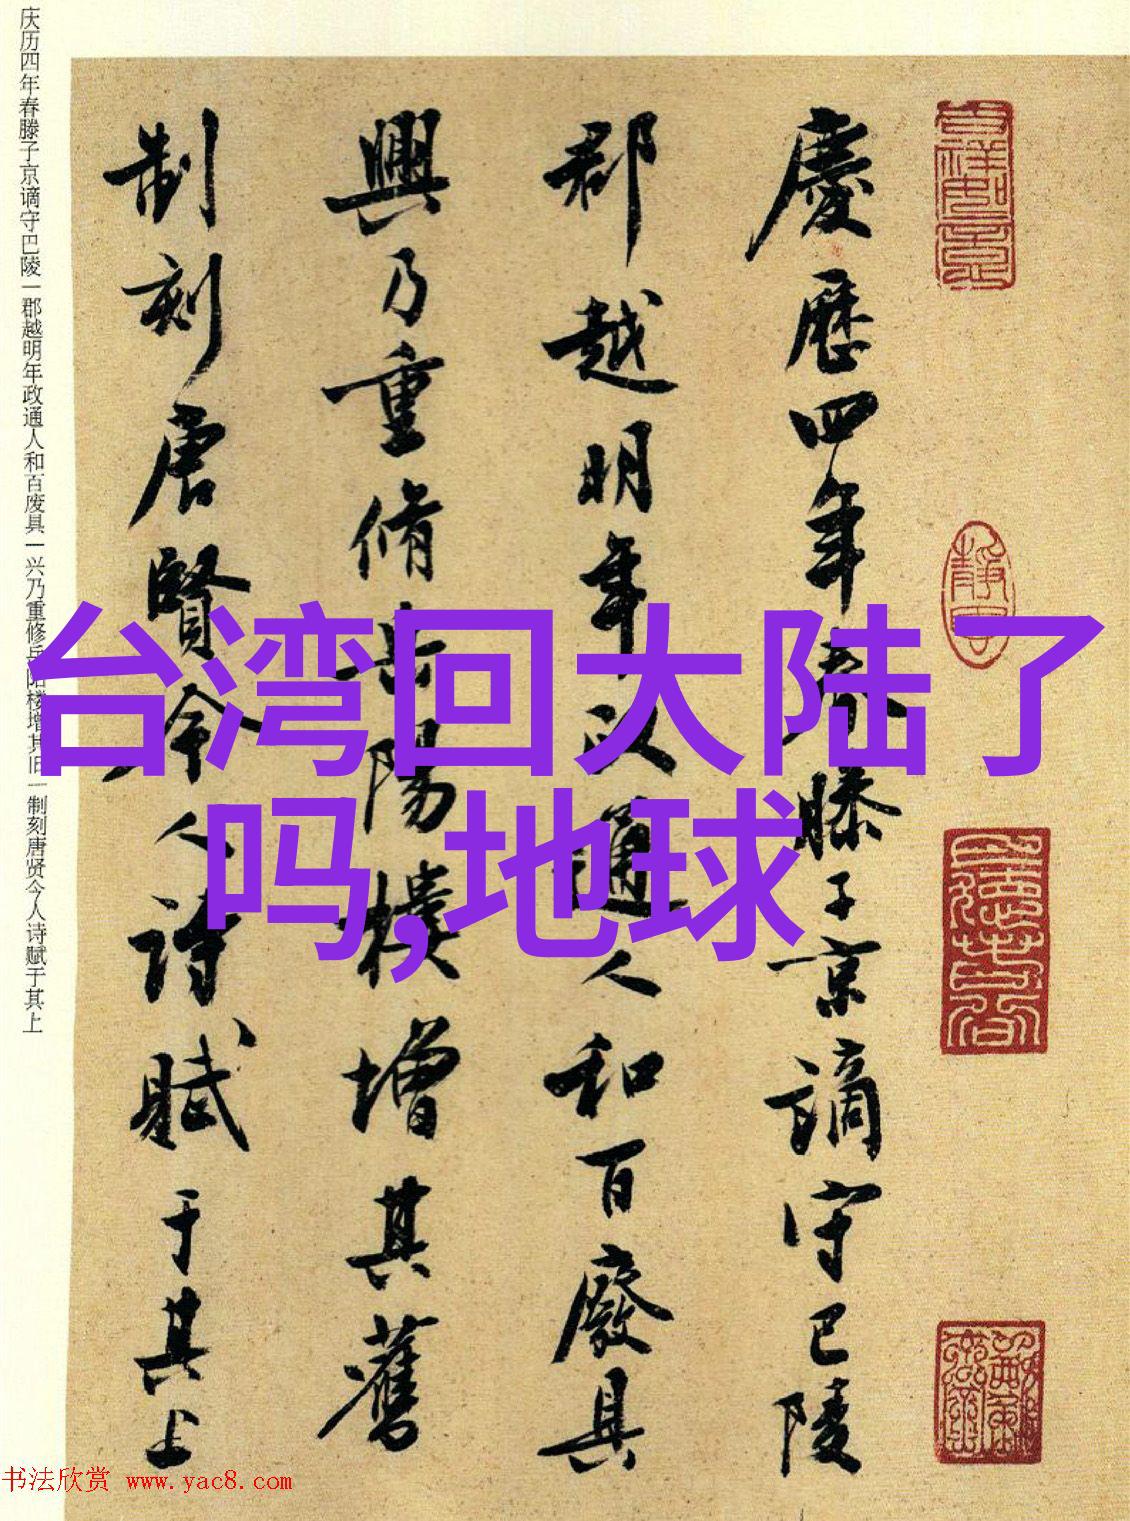 庆历四年春滕子京谪守巴陵一郡越明年政通人和百废具一兴乃重修岳阳楼增其旧一制刻唐贤今人诗赋于其上
慶歷四年春滕子京謫守巴陵
郡越明年政通人和百廢具
興乃重脩岳陽樓增其舊
制刻唐賢今人詩賦于其上
台湾回大陆了
吗,地球
书法欣赏 www.yac8.com